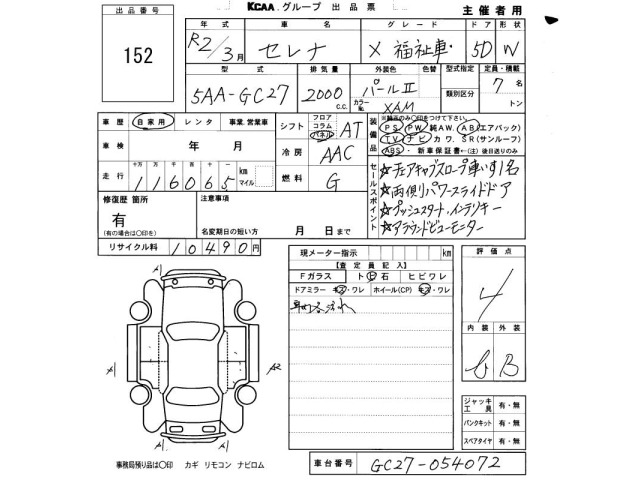 KCAA グループ 出品票
主催者用
出品番号
152
年式 車名 グレード ドア 形状
R2/3月 セレナ X 福祉車 5D W
型式 排気量 外装色 色替 型式指定 定員・積載
5AA-GC27 2000 c.c. パールⅡ 類別区分 7名
カラーNo. XAM トン
車歴 自家用 レンタ 事業.営業車
シフト フロア コラム パネル AT
装備品 ※輸直のみ○印をつけて下さい。
PS PW 純AW. ABエアバック)
TV ナビ カワ SR(サンルーフ)
ABS ・新車保証書←(注)後日送りのみ
車検 年 月
冷房 AAC
走行 十万 万 千 百 十
116065 km マイル
燃料 G
セールスポイント
☆チェアキャブスロープ車いす1名
☆両側パワースライドドア
☆プッシュスタート.インテリキー
☆アラウンドビューモニター
修復歴 箇所
有
(有の場合は○印を)
注意事項
名変期日の短い方 月 日まで
リサイクル料 10490円
現メーター指示 km
【査定員記入】
Fガラス ト ビ 石 ヒビワレ
ドアミラー キズ・ワレ ホイール(CP) キズ・ワレ
評価点
4
内装 外装
B
A1
A1
A2
A1
ジャッキ工具 有・無
パンクキット 有・無
スペアタイヤ 有・無
事務局預り品は○印 カギ リモコン ナビロム
車台番号 GC27-054072